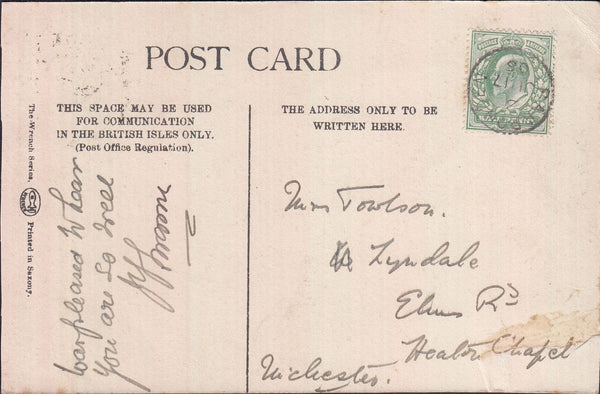 POST CARD
THIS SPACE MAY BE USED
FOR COMMUNICATION
IN THE BRITISH ISLES ONLY.
(Post Office Regulation).
THE ADDRESS ONLY TO BE
WRITTEN HERE.
The Wrench Series.
Printed in Saxony.
pleased
You are so well
Mrs Towlson.
Lyndale
Elms Rd
Heaton Chapel
Manchester.
POSTAGE REVENUE
HALFPENNY